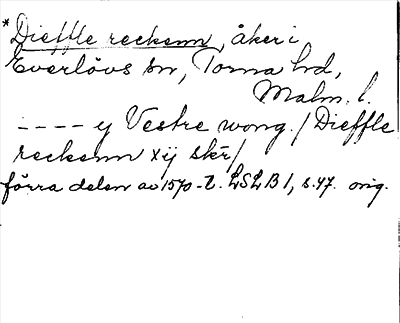 *Dieffle reckenn, åker i
Everlövs sn, Torna hrd,
Malm. l.
---- y Vestre wong. / Dieffle
reckenn xij skr/
förra delen av 1570-t. LSLB 1, s. 47. orig.